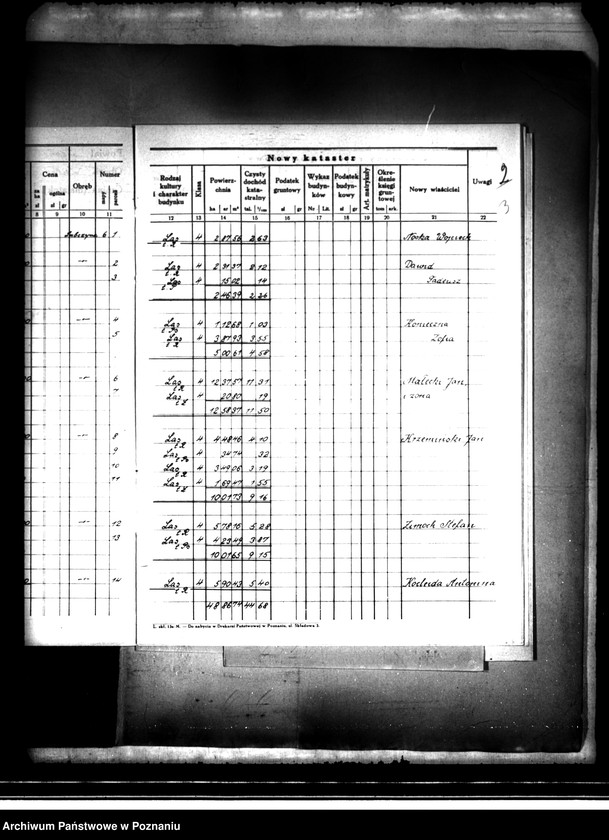 Nowy kataster
Cena
Obręb
Numer
ogólna
mapy
parceli
zł
gr
zł
gr
8
9
10
11
Rodzaj kultury i charakter budynku
Klasa
Powierzchnia
ha ar m²
Czysty dochód katastralny
tal. 1/100
Podatek gruntowy
zł gr
Wykaz budynków
Nr Lit.
Podatek budynkowy
zł gr
Art. matrykuły
Określenie księgi gruntowej
tom ark.
Nowy właściciel
Uwagi
2
3
12 13 14 15 16 17 18 19 20 21 22
6 1 Las 4 2 87 56 2 63 Noska Wojciech
2 Las 4 2 31 37 2 12 Dawid
3 Las 4 15 02 14 Tadeusz
2 46 39 2 26
4 Las 4 1 12 68 1 03 Konieczna
5 Las 4 3 87 93 3 55 Zofia
5 00 61 4 58
6 Las 4 12 37 57 11 31 Małecki Jan
7 Las 4 20 80 19 i żona
12 58 37 11 50
8 Las 4 4 48 46 4 10 Krzemiński Jan
9 Las 4 34 74 32
10 Las 4 3 49 06 3 19
11 Las 4 1 69 47 1 55
10 01 73 9 16
12 Las 4 5 78 16 5 28 Zmoch Stefan
13 Las 4 4 23 49 3 87
10 01 65 9 15
14 Las 4 5 90 43 5 40 Antonina
48 86 74 44 68
L. skł. 13a M. — Do nabycia w Drukarni Państwowej w Poznaniu, ul. Składowa 3.
Archiwum Państwowe w Poznaniu